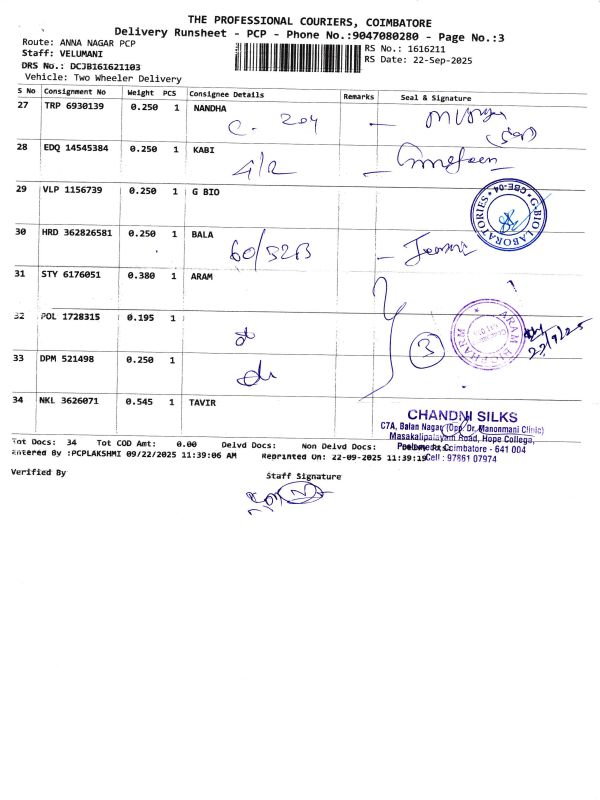 THE PROFESSIONAL COURIERS, COIMBATORE
Delivery Runsheet - PCP - Phone No.:9047080280 - Page No.:3
Route: ANNA NAGAR PCP
RS No.: 1616211
Staff: VELUMANI
RS Date: 22-Sep-2025
DRS No.: DCJB161621103
Vehicle: Two Wheeler Delivery
S No Consignment No Weight PCS Consignee Details Remarks Seal & Signature
27 TRP 6930139 0.250 1 NANDHA
C. 204
28 EDQ 14545384 0.250 1 KABI
4/2
29 VLP 1156739 0.250 1 G BIO
G-BIO LABORATORIES * CBE-04 *
30 HRD 362826581 0.250 1 BALA
60/52B
31 STY 6176051 0.380 1 ARAM
32 POL 1728315 0.195 1
3
ARAM
33 DPM 521498 0.250 1
do
34 NKL 3626071 0.545 1 TAVIR
CHANDNI SILKS
C7A, Balan Nagar, (Opp. Dr. Manonmani Clinic)
Masakalipalayam Road, Hope College,
Peelamedu, Coimbatore - 641 004
Cell : 97861 07974
Tot Docs: 34 Tot COD Amt: 0.00 Delvd Docs: Non Delvd Docs:
Entered By :PCPLAKSHMI 09/22/2025 11:39:06 AM Reprinted On: 22-09-2025 11:39:19
Verified By
Staff Signature